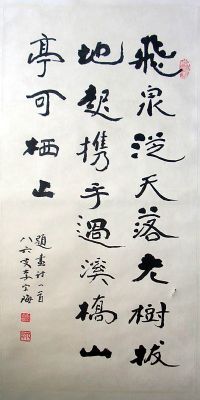 飛泉從天落老樹拔
地起携手過溪橋山
亭可栖止
題畫詩一首
八六叟李海